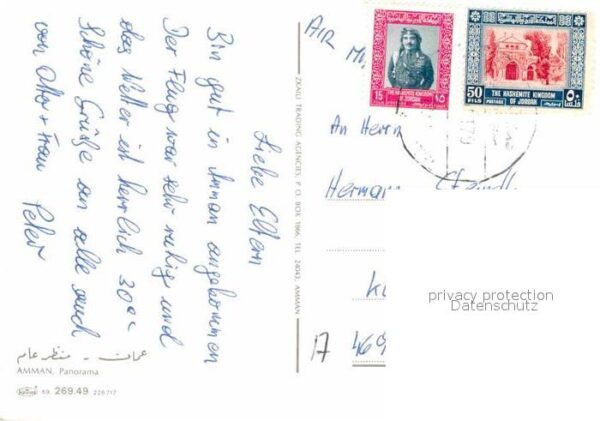 Liebe Eltern
Bin gut in Amman angekommen
Der Flug war sehr ruhig und
das Wetter ist herrlich 30°C
Schöne Grüße an alle auch
von
Peter
عمان - منظر عام
AMMAN, Panorama
69. 269.49 226717
ZKAILI TRADING AGENCIES, P. O. BOX 1866, TEL. 24043, AMMAN
AIR
15 THE HASHEMITE KINGDOM OF JORDAN ١٥
50 FILS THE HASHEMITE KINGDOM
POSTAGE OF JORDAN ٥٠ فلسا
An Herrn
Hermann
A 469
privacy protection
Datenschutz